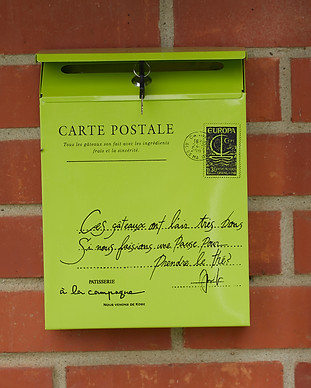 CARTE POSTALE
Tous les gâteaux son fait avec les ingrédients
frais et la sincérité.
EUROPA
Ces gâteaux ont l'air très bons
Si nous faisions une Pause Pour
Prendre le thé?
PATISSERIE
à la campagne
NOUS VENONS DE PORC